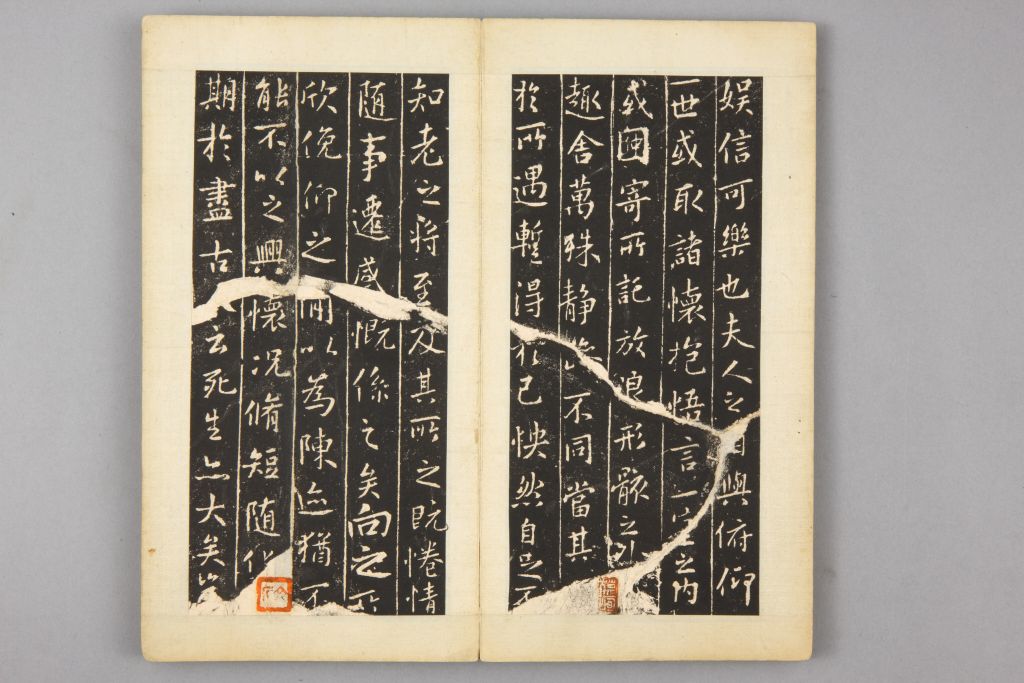 娛信可樂也夫人之與俯仰
一世或取諸懷抱悟言一室之内
或因寄所託放浪形骸之外
趣舍萬殊靜躁不同當其
於所遇暫得於己怏然自足不
知老之將至及其所之既惓情
隨事遷感慨係之矣向之所
欣俛仰之間以為陳迹猶不
能不以之興懷況脩短隨化
期於盡古云死生亦大矣豈